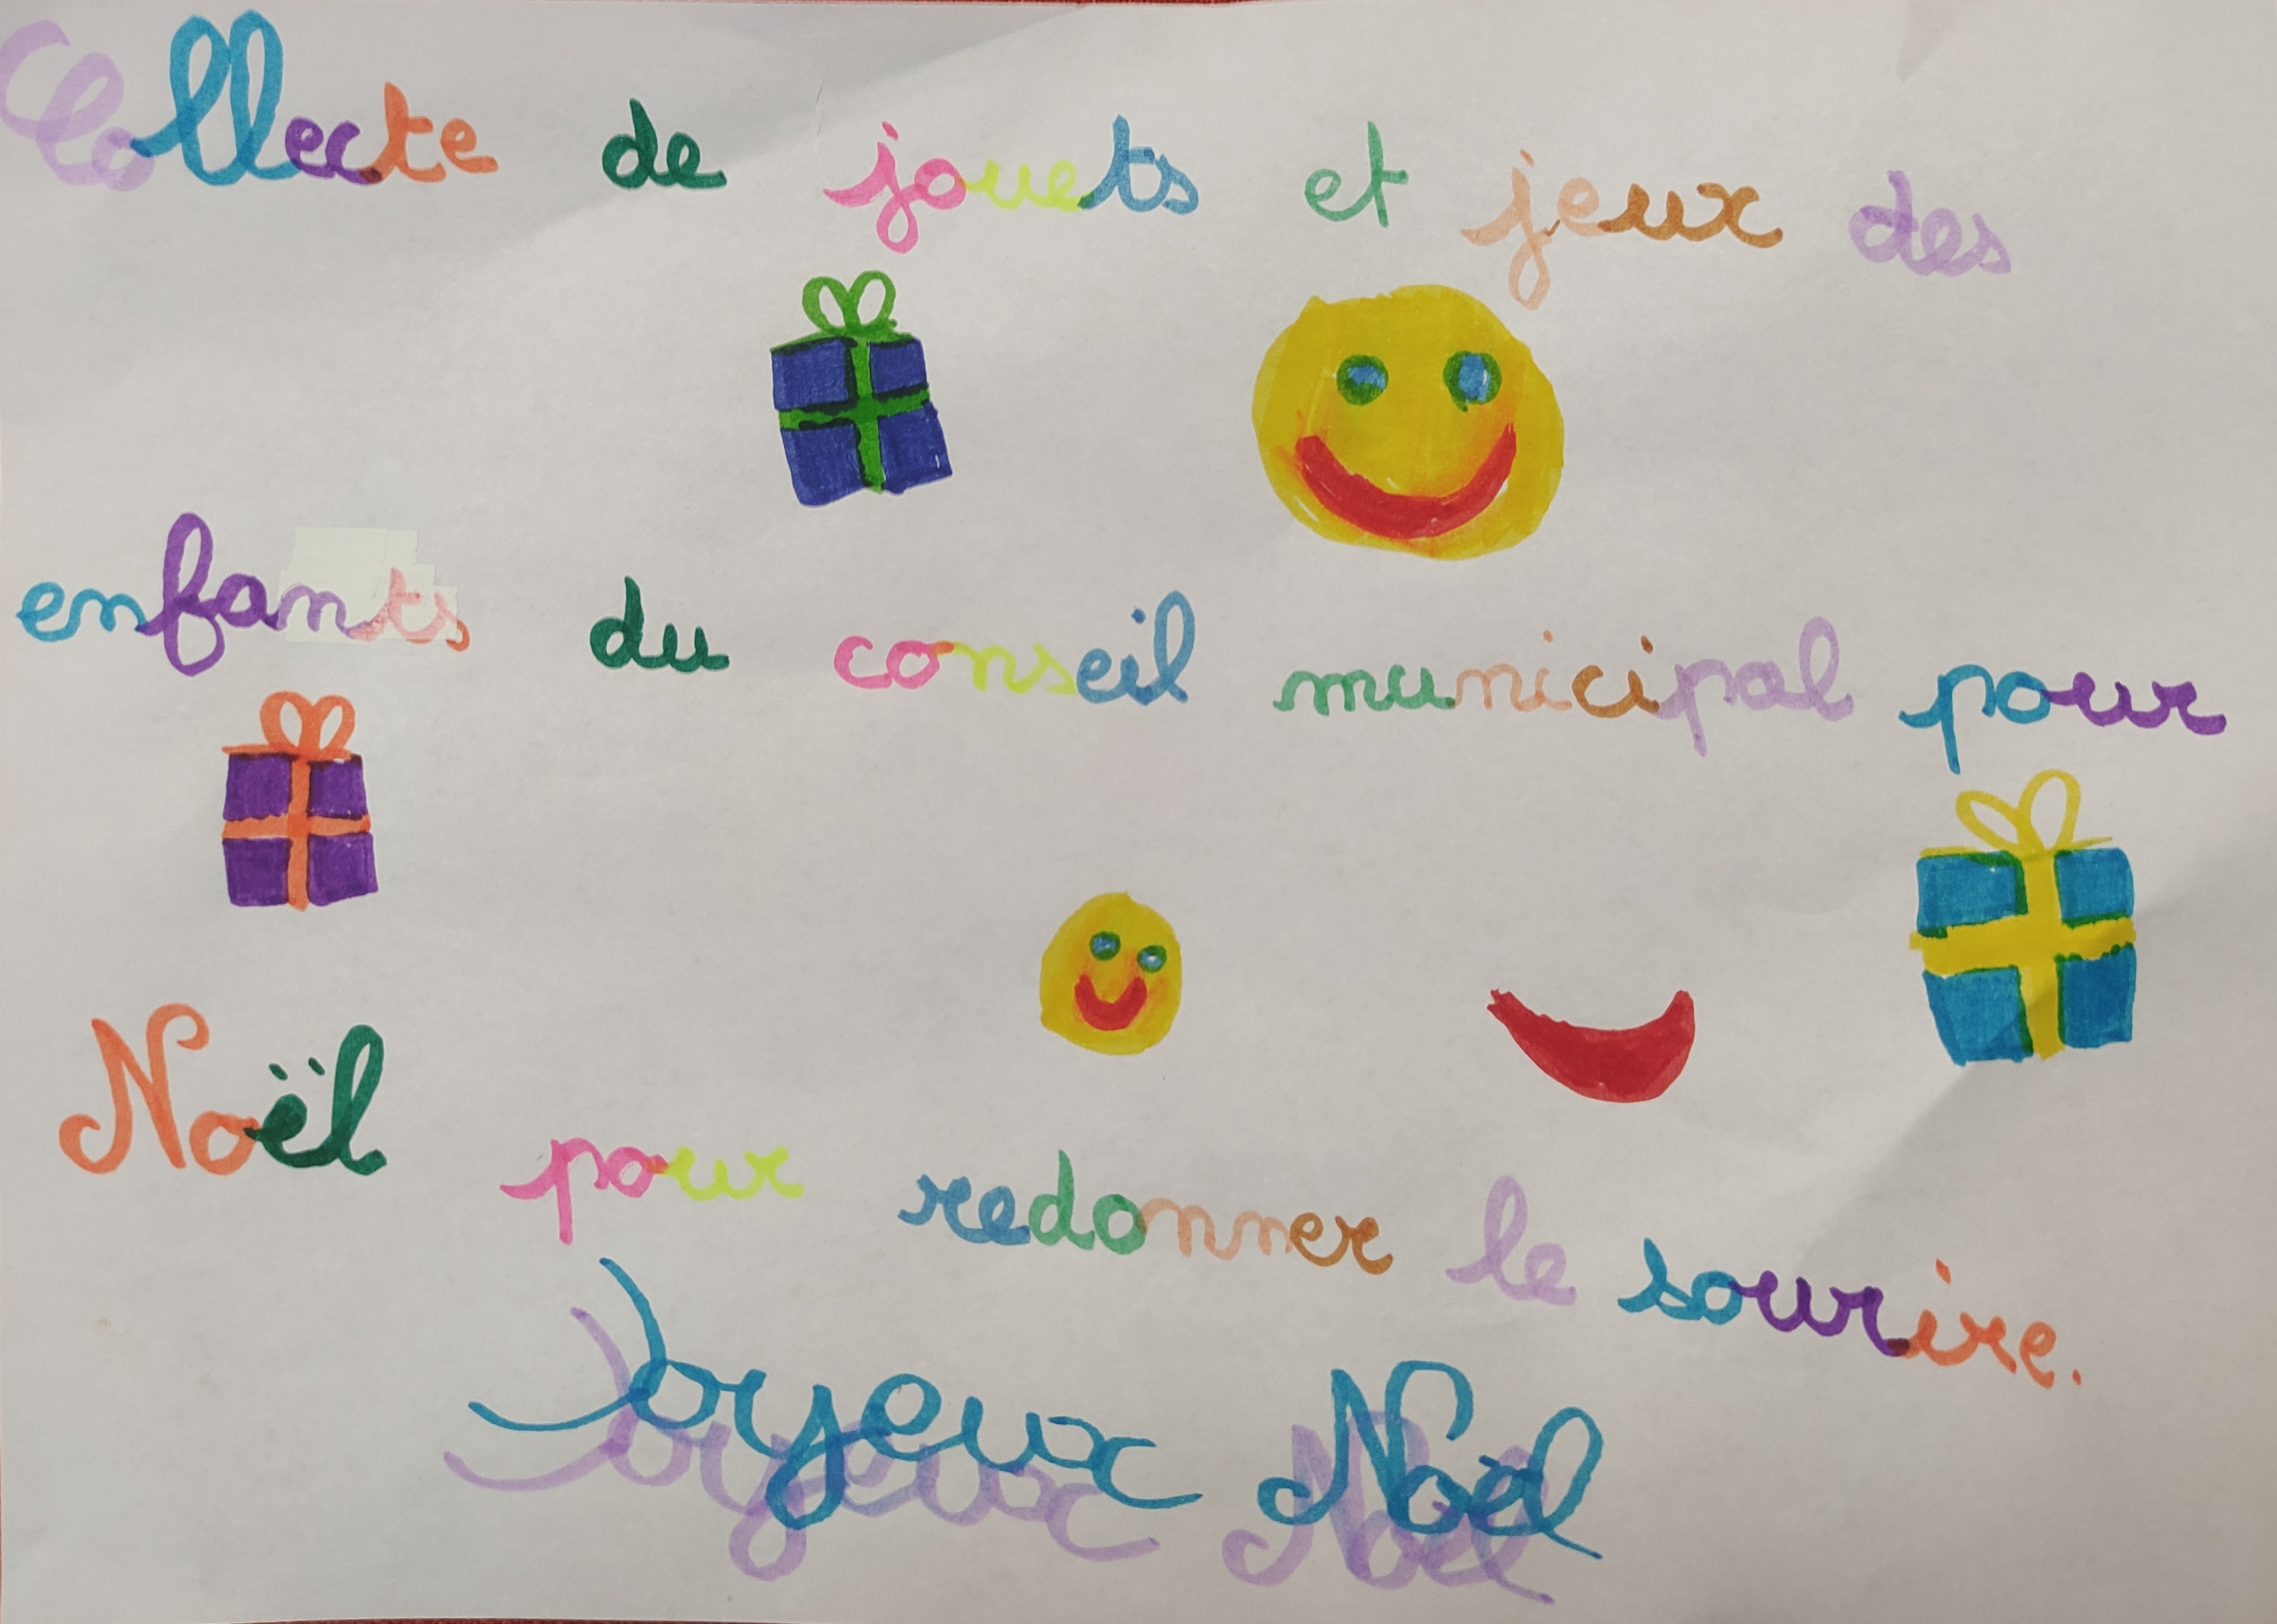 Collecte de jouets et jeux des
enfants du conseil municipal pour
Noël pour redonner le sourire.
Joyeux Noël